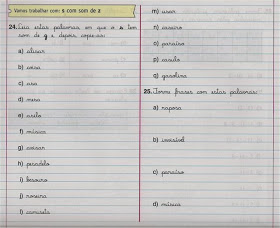 Vamos trabalhar com: s com som de z
24. Leia estas palavras em que o s tem
som de z e, depois, copie-as:
a) alisar
b) coisa
c) asa
d) mesa
e) asilo
f) música
g) avisar
h) pesadelo
i) besouro
j) roseira
l) camiseta
m) usar
n) caseiro
o) paraíso
p) casulo
q) gasolina
25. Forme frases com estas palavras:
a) raposa
b) invisível
c) paraíso
d) música